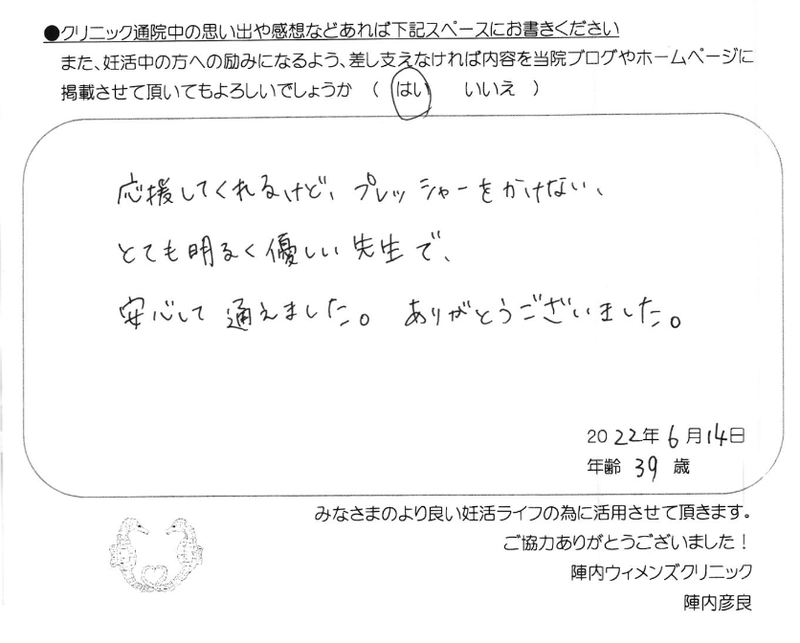 ●クリニック通院中の思い出や感想などあれば下記スペースにお書きください
また、妊活中の方への励みになるよう、差し支えなければ内容を当院ブログやホームページに
掲載させて頂いてもよろしいでしょうか （ はい いいえ ）
応援してくれるけど、プレッシャーをかけない、
とても明るく優しい先生で、
安心して通えました。ありがとうございました。
2022年6月14日
年齢 39 歳
みなさまのより良い妊活ライフの為に活用させて頂きます。
ご協力ありがとうございました！
陣内ウィメンズクリニック
陣内彦良